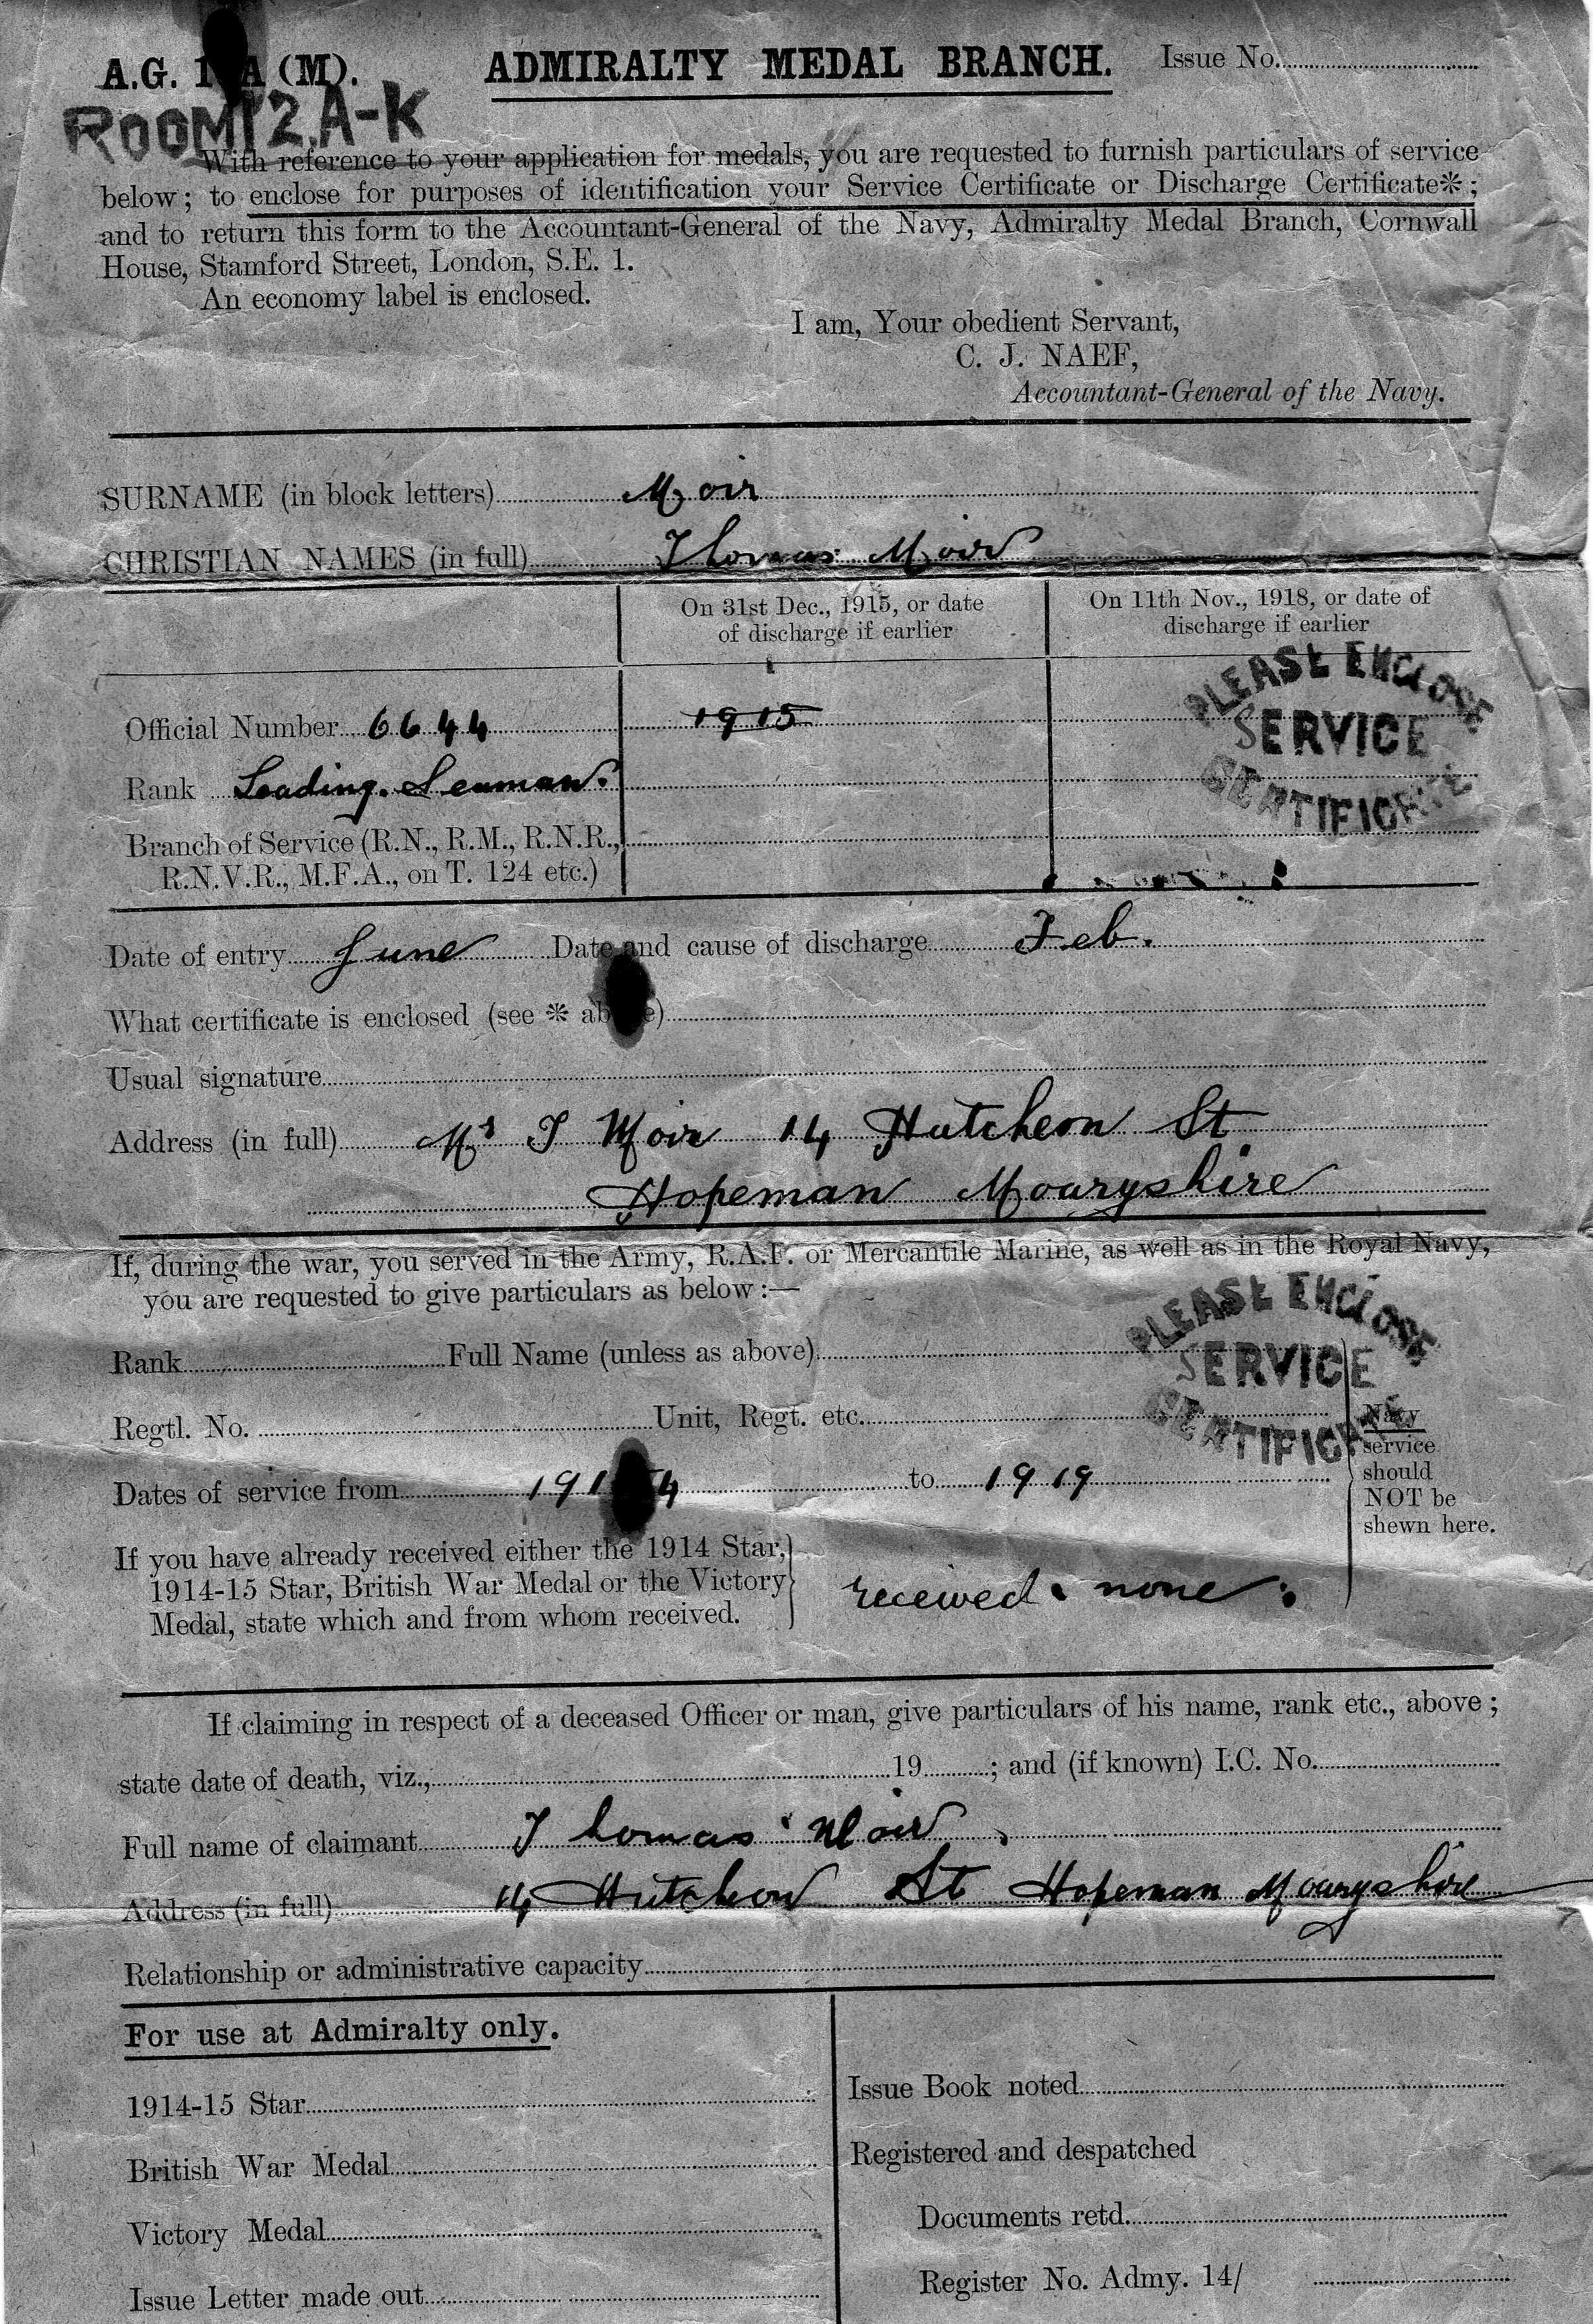 A.G. 1 A (M). ADMIRALTY MEDAL BRANCH. Issue No.
ROOM 12. A-K
With reference to your application for medals, you are requested to furnish particulars of service
below; to enclose for purposes of identification your Service Certificate or Discharge Certificate*;
and to return this form to the Accountant-General of the Navy, Admiralty Medal Branch, Cornwall
House, Stamford Street, London, S.E. 1.
An economy label is enclosed.
I am, Your obedient Servant,
C. J. NAEF,
Accountant-General of the Navy.
SURNAME (in block letters) Moir
CHRISTIAN NAMES (in full) Thomas Moir
On 31st Dec., 1915, or date
of discharge if earlier
On 11th Nov., 1918, or date of
discharge if earlier
PLEASE ENCLOSE
SERVICE
CERTIFICATE
Official Number 6644 1915
Rank Leading Seaman.
Branch of Service (R.N., R.M., R.N.R.,
R.N.V.R., M.F.A., on T. 124 etc.)
Date of entry June Date and cause of discharge Feb.
What certificate is enclosed (see * above)
Usual signature
Address (in full) Mr T Moir 14 Hutcheon St
Hopeman Mouryshire
If, during the war, you served in the Army, R.A.F. or Mercantile Marine, as well as in the Royal Navy,
you are requested to give particulars as below:—
PLEASE ENCLOSE
SERVICE
CERTIFICATE
Rank Full Name (unless as above)
Regtl. No. Unit, Regt. etc.
Dates of service from 191 4 to 1919
Navy
service
should
NOT be
shewn here.
If you have already received either the 1914 Star,
1914-15 Star, British War Medal or the Victory
Medal, state which and from whom received.
received. none.
If claiming in respect of a deceased Officer or man, give particulars of his name, rank etc., above;
state date of death, viz., 19 ; and (if known) I.C. No.
Full name of claimant Thomas Moir
Address (in full) 14 Hutcheon St Hopeman Mouryshire
Relationship or administrative capacity
For use at Admiralty only.
1914-15 Star
British War Medal
Victory Medal
Issue Letter made out
Issue Book noted
Registered and despatched
Documents retd.
Register No. Admy. 14/